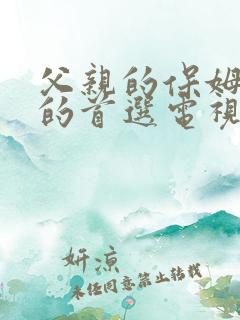 父親的保姆
的首選電視
妍涼
未经同意禁止转载